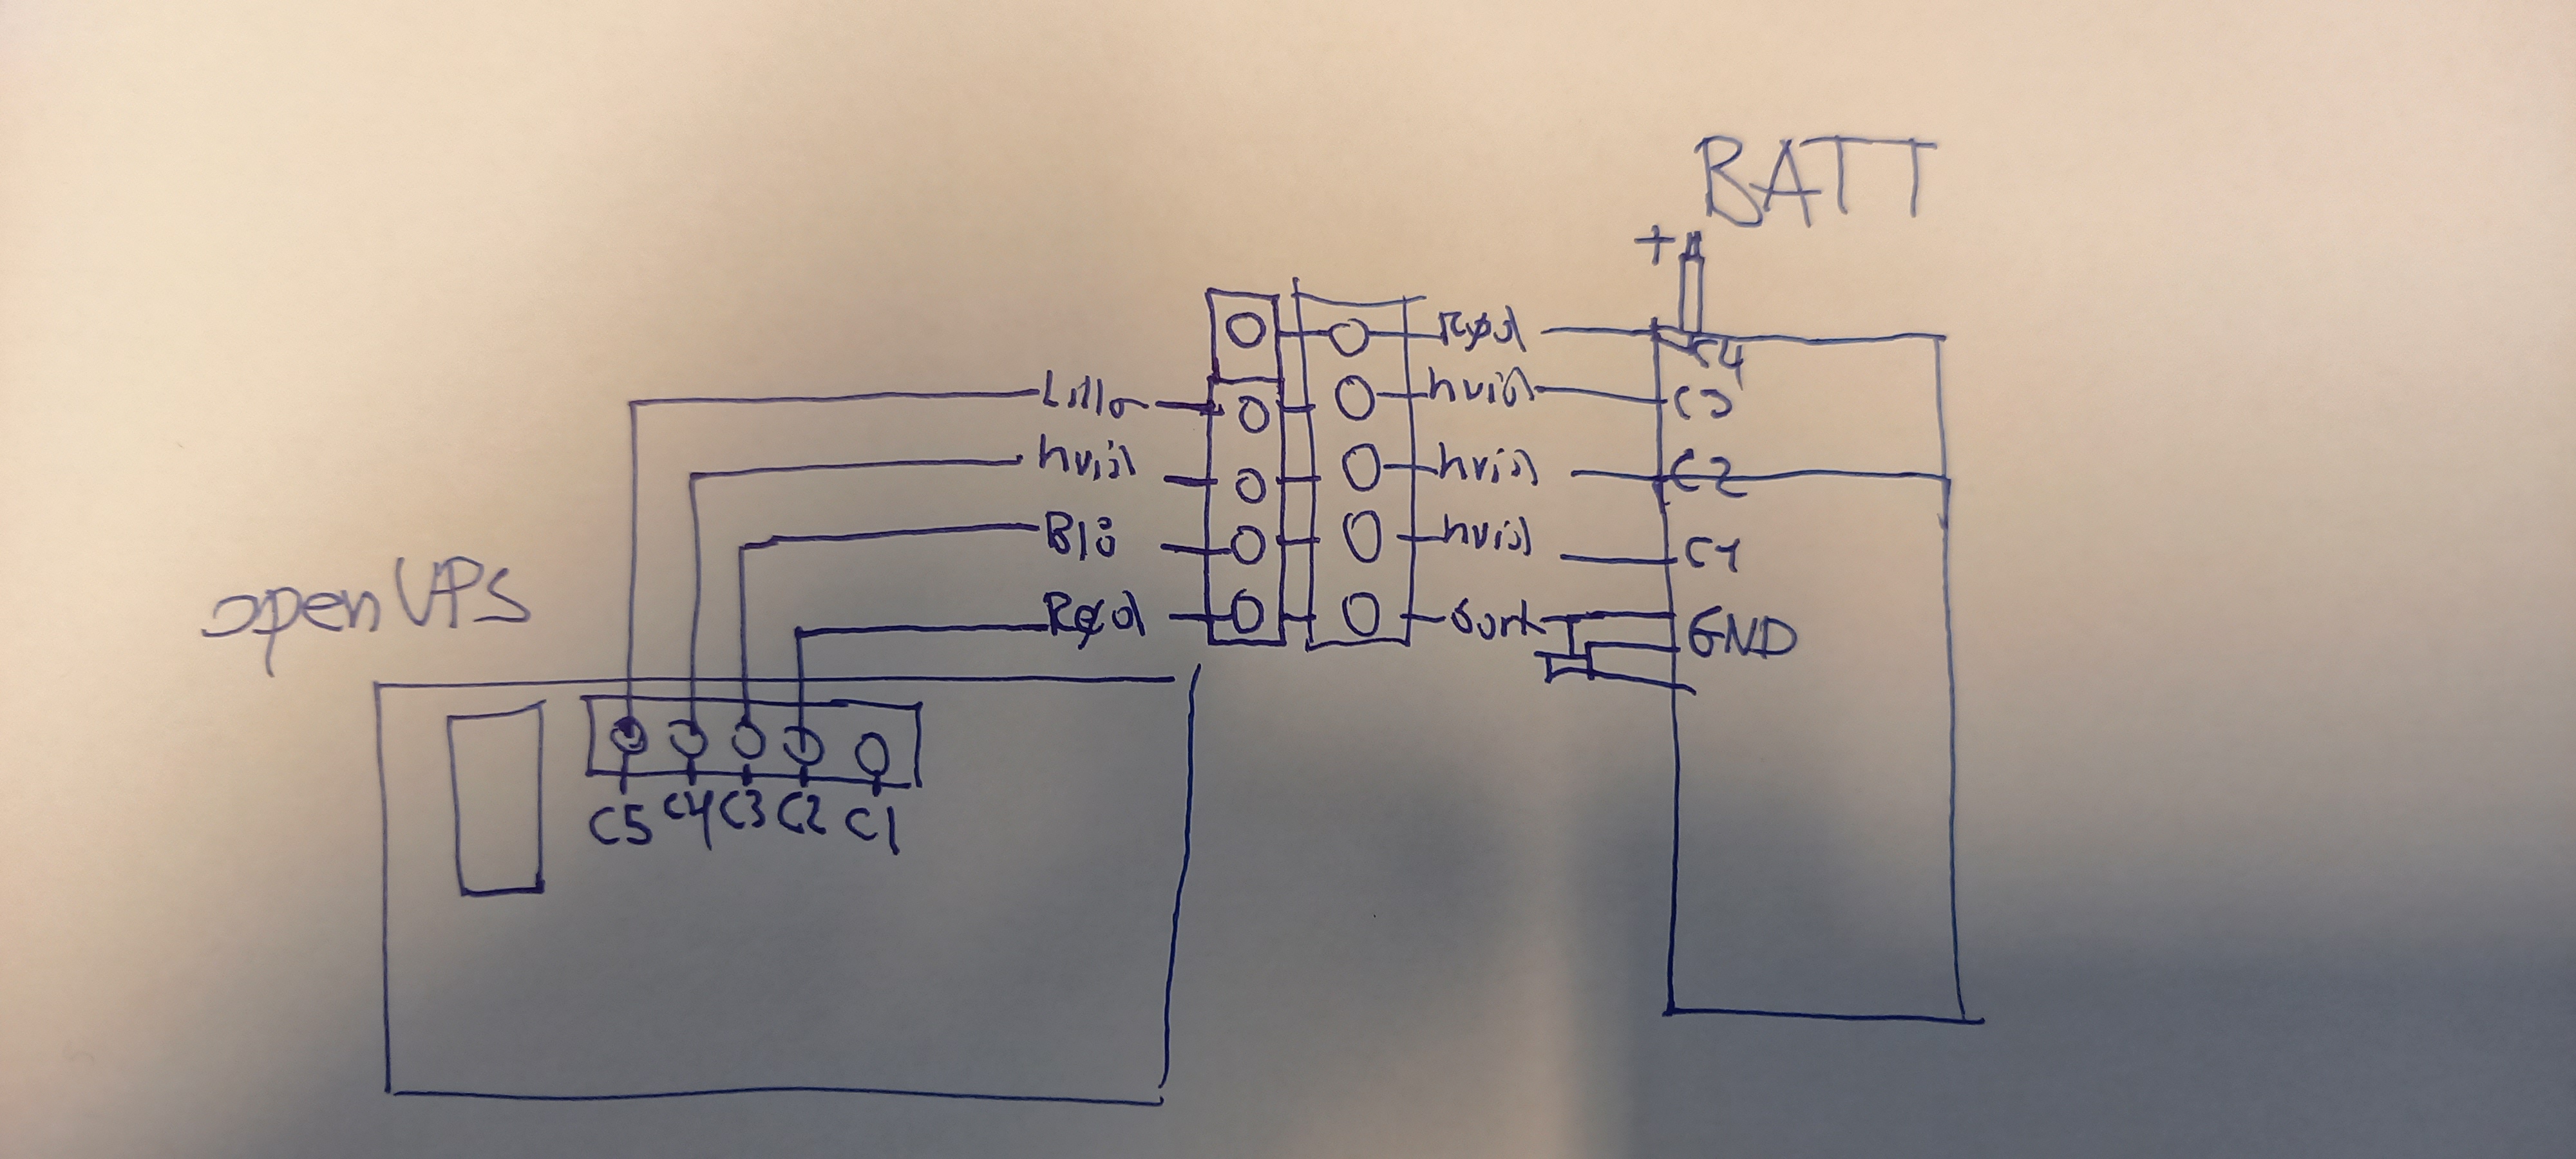 open UPS
C5
C4
C3
C2
C1
Lilla
hvid
Blå
Rød
Rød
hvid
hvid
hvid
Sort
+
BATT
C4
C3
C2
C1
GND